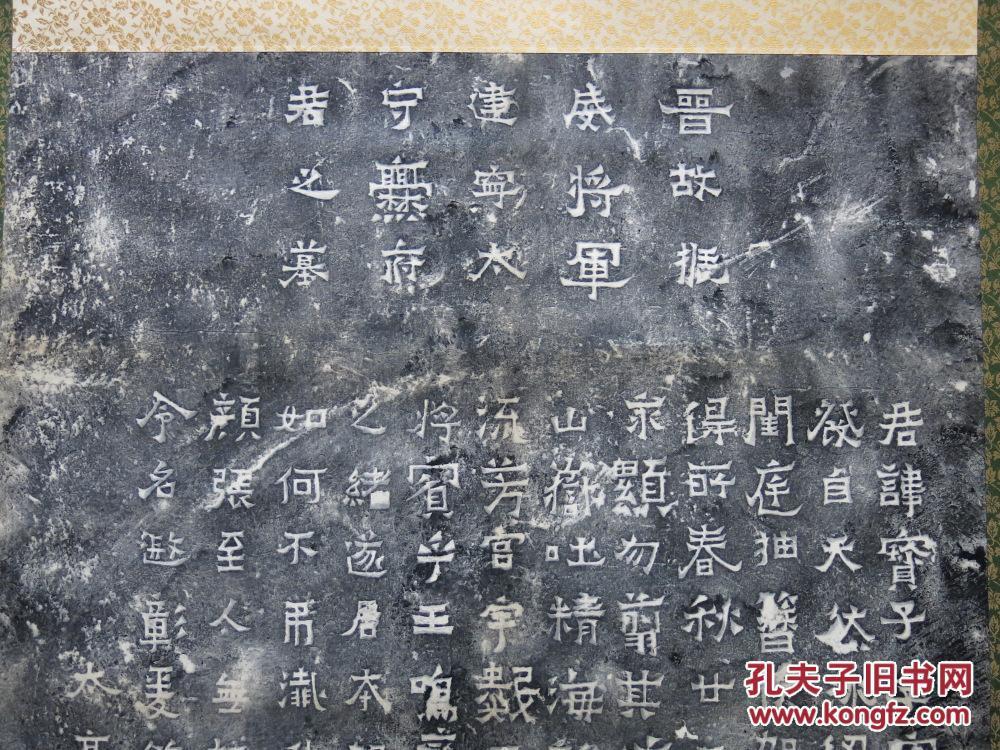 晉故振
威將軍
建寧太
守爨府
君之墓
君諱寶子
發自天然
閨庭抽簪
得所春秋廿
永顯勿翦其
山嶽吐精海
流芳宮宇數
將賓乎王鳴
之緒遂居本
如何不弔殲
顏張至人無
令名遐彰爰
太亨
孔夫子旧书网
www.kongfz.com